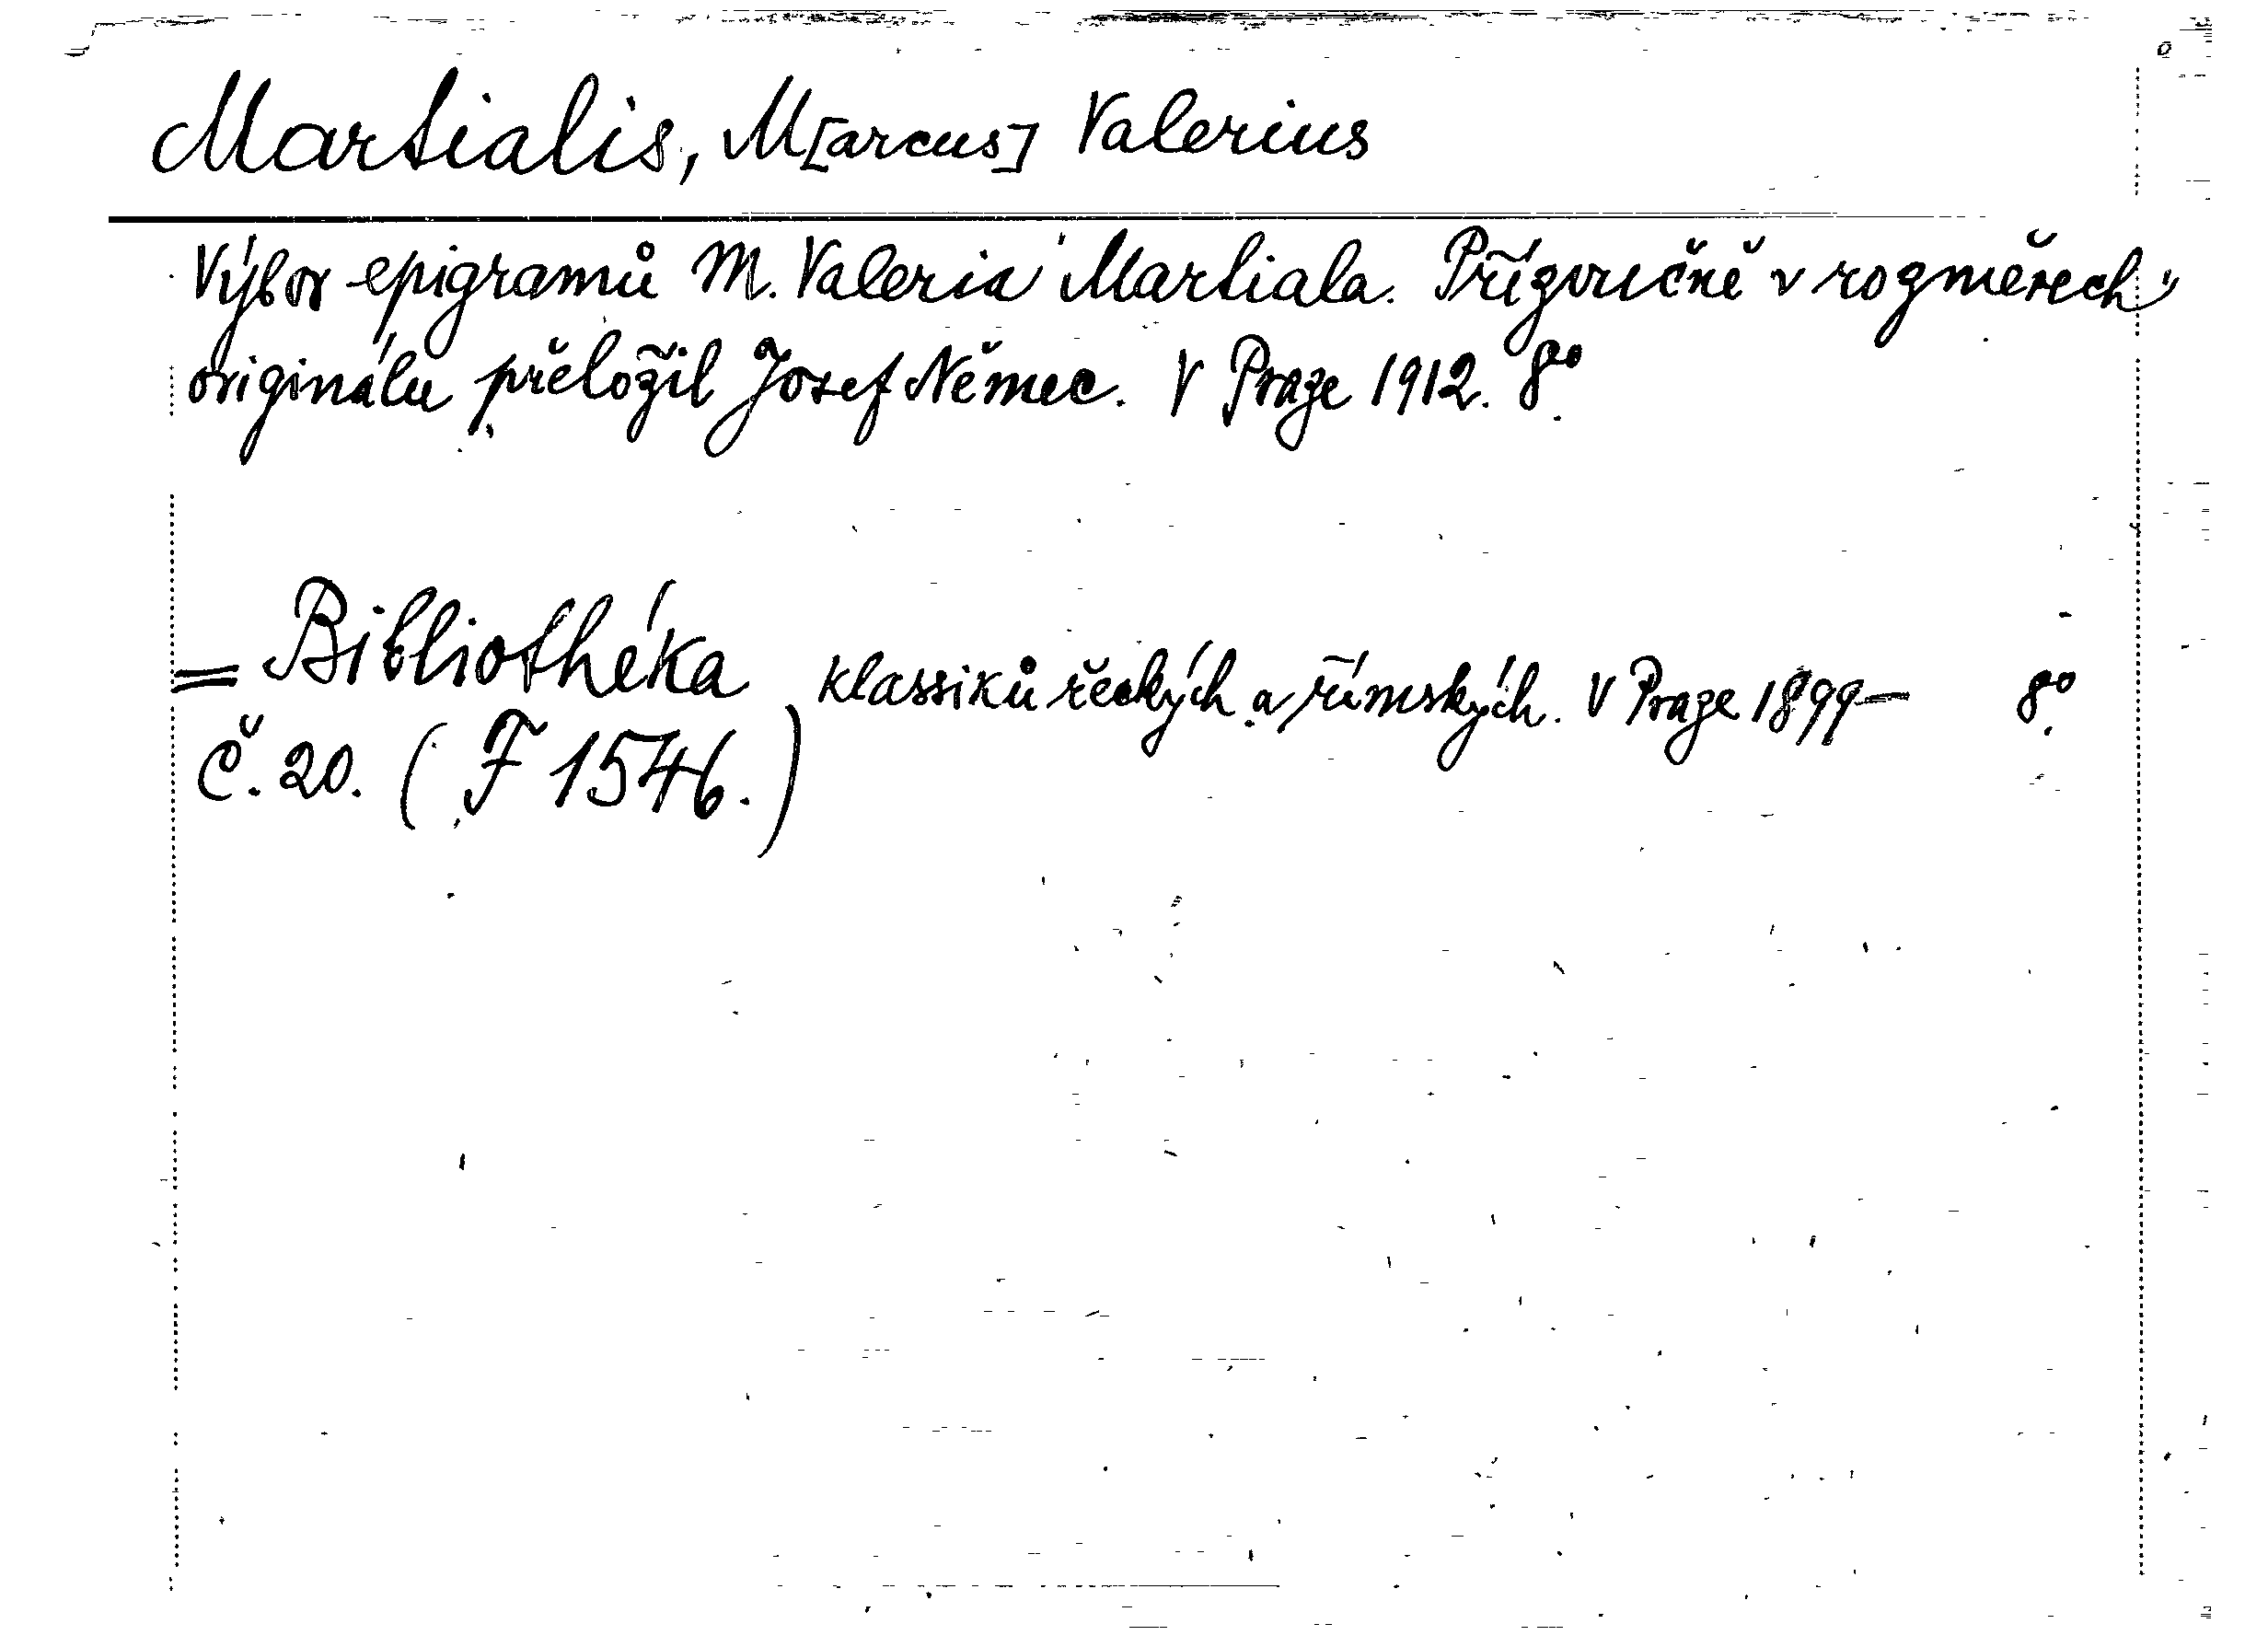 Martialis, M[arcus] Valerius
Výbor epigramů M. Valeria Martiala. Přízvučně v rozměrech
originálu přeložil Josef Němec. V Praze 1912. 8°.
= Bibliothéka klassiků řeckých a římských. V Praze 1899— 8°.
Č. 20. (F 1546.)